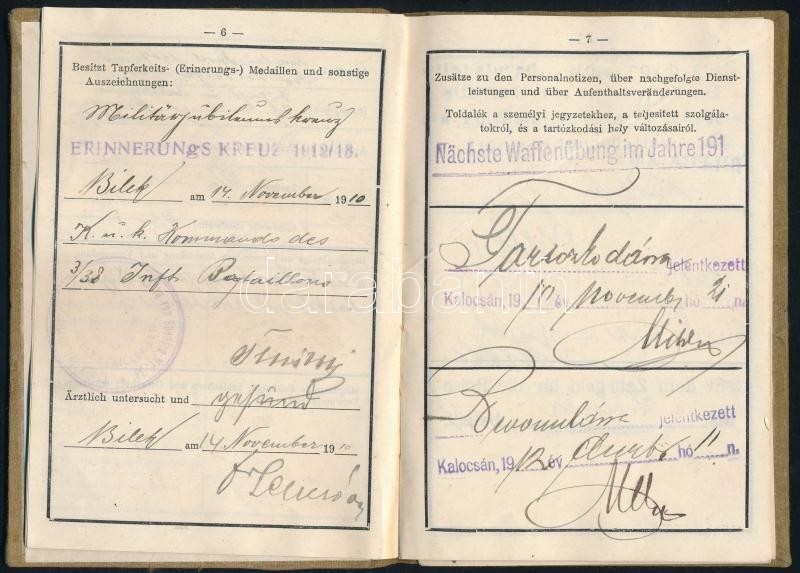 — 6 —
Besitzt Tapferkeits- (Erinerungs-) Medaillen und sonstige
Auszeichnungen:
Militärjubileumskreuz
ERINNERUNGS KREUZ 1912/13.
Bilek am 14. November 1910
K. u. k. Kommando des
3/38 Inft. Bataillons
Ärztlich untersucht und gesund
Bilek am 14 November 1910
— 7 —
Zusätze zu den Personalnotizen, über nachgefolgte Dienst-
leistungen und über Aufenthaltsveränderungen.
Toldalék a személyi jegyzetekhez, a teljesitett szolgála-
tokról, és a tartózkodási hely változásairól.
Nächste Waffenübung im Jahre 191
jelentkezett
Kalocsán, 1910 év november hó 21 n.
jelentkezett
Kalocsán, 1912 év hó 11 n.
darabanth